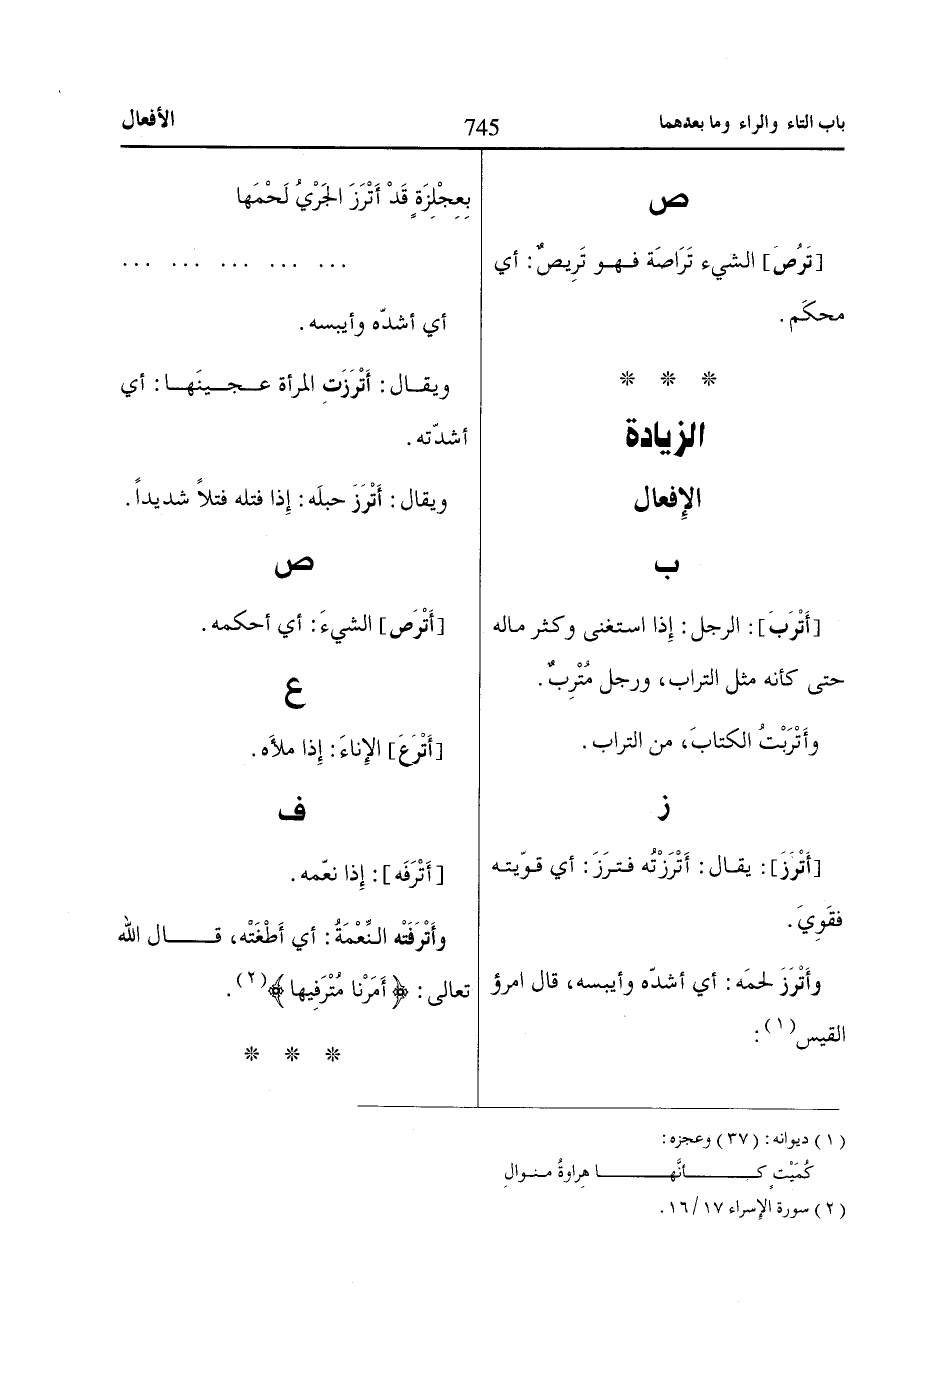 باب التاء والراء وما بعدهما
745
الأفعال
ص
[تَرُصَ] الشيء تَرَاصَة فهو تَرِيصٌ: أي
محكَم.
* * *
الزيادة
الإفعال
ب
[أَتْرَبَ]: الرجل: إذا استغنى وكثر ماله
حتى كأنه مثل التراب، ورجل مُتْرِبٌ.
وأَتْرَبْتُ الكتابَ، من التراب.
ز
[أَتْرَزَ]: يقال: أَتْرَزْتُه فترَزَ: أي قوّيته
فقَوِيَ.
وأَتْرَزَ لحمَه: أي أشدّه وأيبسه، قال امرؤ
القيس(١):
بِعِجْلِزَةٍ قَدْ أَتْرَزَ الجَرْيُ لَحْمَها
... ... ... ... ...
أي أشدّه وأيبسه.
ويقال: أَتْرَزَتِ المرأة عجينَها: أي
أشدّته.
ويقال: أَتْرَزَ حبلَه: إِذا فتله فتلاً شديداً.
ص
[أَتْرَص] الشيءَ: أي أحكمه.
ع
[أَتْرَعَ] الإناءَ: إِذا ملأه.
ف
[أَتْرَفَه]: إِذا نعّمه.
وأَتْرَفَتْه النِّعْمَةُ: أي أَطْغَتْه، قال الله
تعالى: ﴿أَمَرْنا مُتْرَفِيها﴾(٢).
* * *
(١) ديوانه: (٣٧) وعجزه:
كُمَيْتٍ كأنَّها هِراوةُ منوالِ
(٢) سورة الإسراء ١٧/١٦.